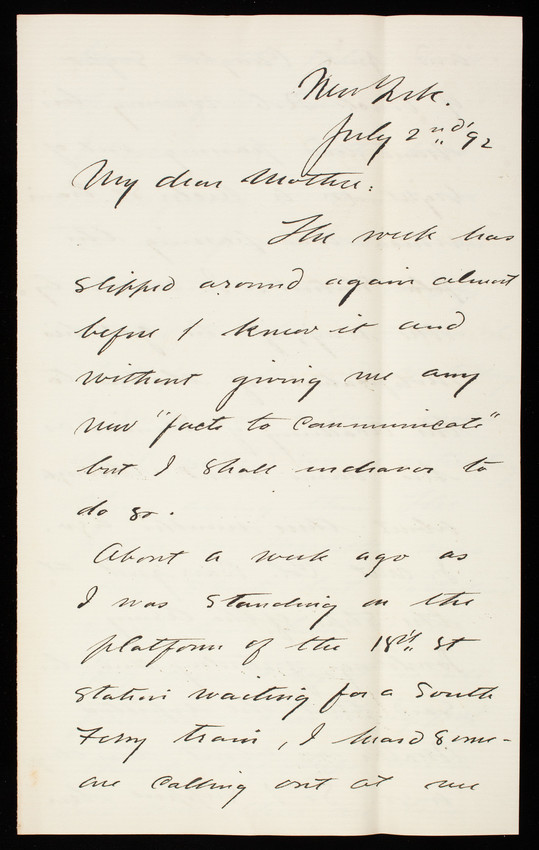 New York.
July 2nd, 92
My dear Mother:
The week has
slipped around again almost
before I knew it and
without giving me any
new "facts to communicate"
but I shall endeavor to
do so.
About a week ago as
I was standing on the
platform of the 18th St
Station waiting for a South
Ferry train, I heard some-
one calling out at me